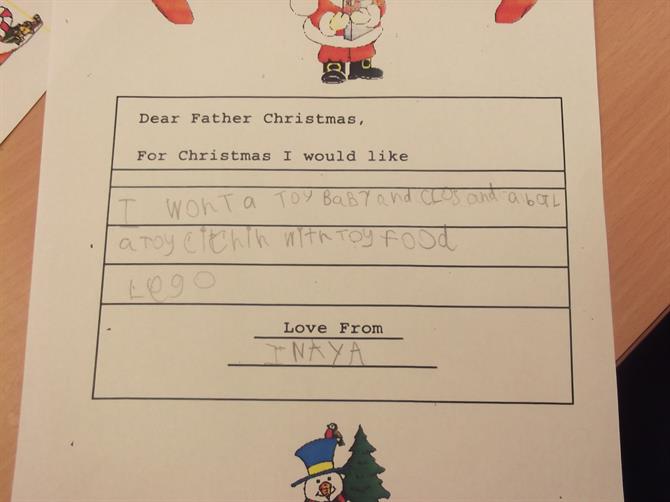 Dear Father Christmas,
For Christmas I would like
I WONT a TOY BaBY and CLOS and a bOL
a TOY CitChin With TOY FOOD
LegO
Love From
INAYA